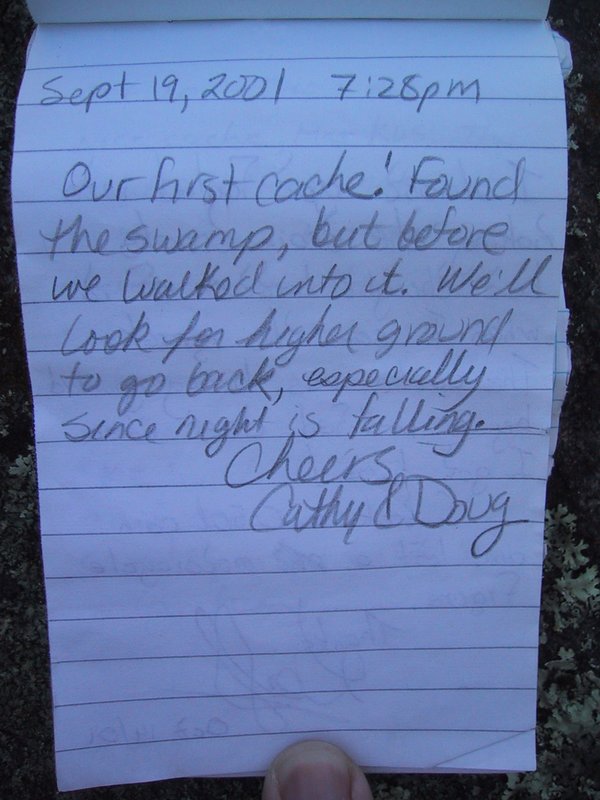 Sept 19, 2001 7:28pm
Our first cache! Found
the swamp, but before
we walked into it. We'll
look for higher ground
to go back, especially
since night is falling.
Cheers
Cathy & Doug